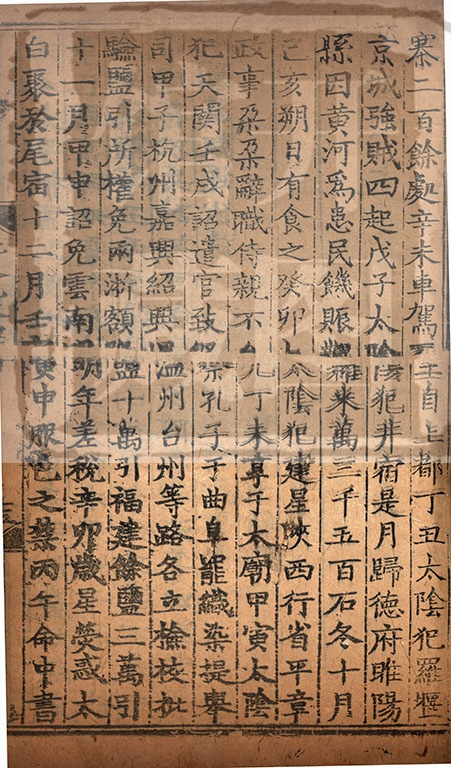 寨二百餘處辛未車駕至自上都丁丑太陰犯羅堰
京城強賊四起戊子太陰犯井宿是月歸德府睢陽
縣因黃河爲患民饑賑糶米萬三千五百石冬十月
己亥朔日有食之癸卯太陰犯建星陜西行省平章
政事朶朶辭職侍親不允丁未享于太廟甲寅太陰
犯天関壬戌詔遣官致祭孔子于曲阜罷織染提舉
司甲子杭州嘉興紹興溫州台州等路各立檢校批
驗鹽引所權免兩淅額鹽十萬引福建餘鹽三萬引
十一月甲申詔免雲南明年差稅辛卯歲星熒惑太
白聚於尾宿十二月壬寅申服色之禁丙午命中書